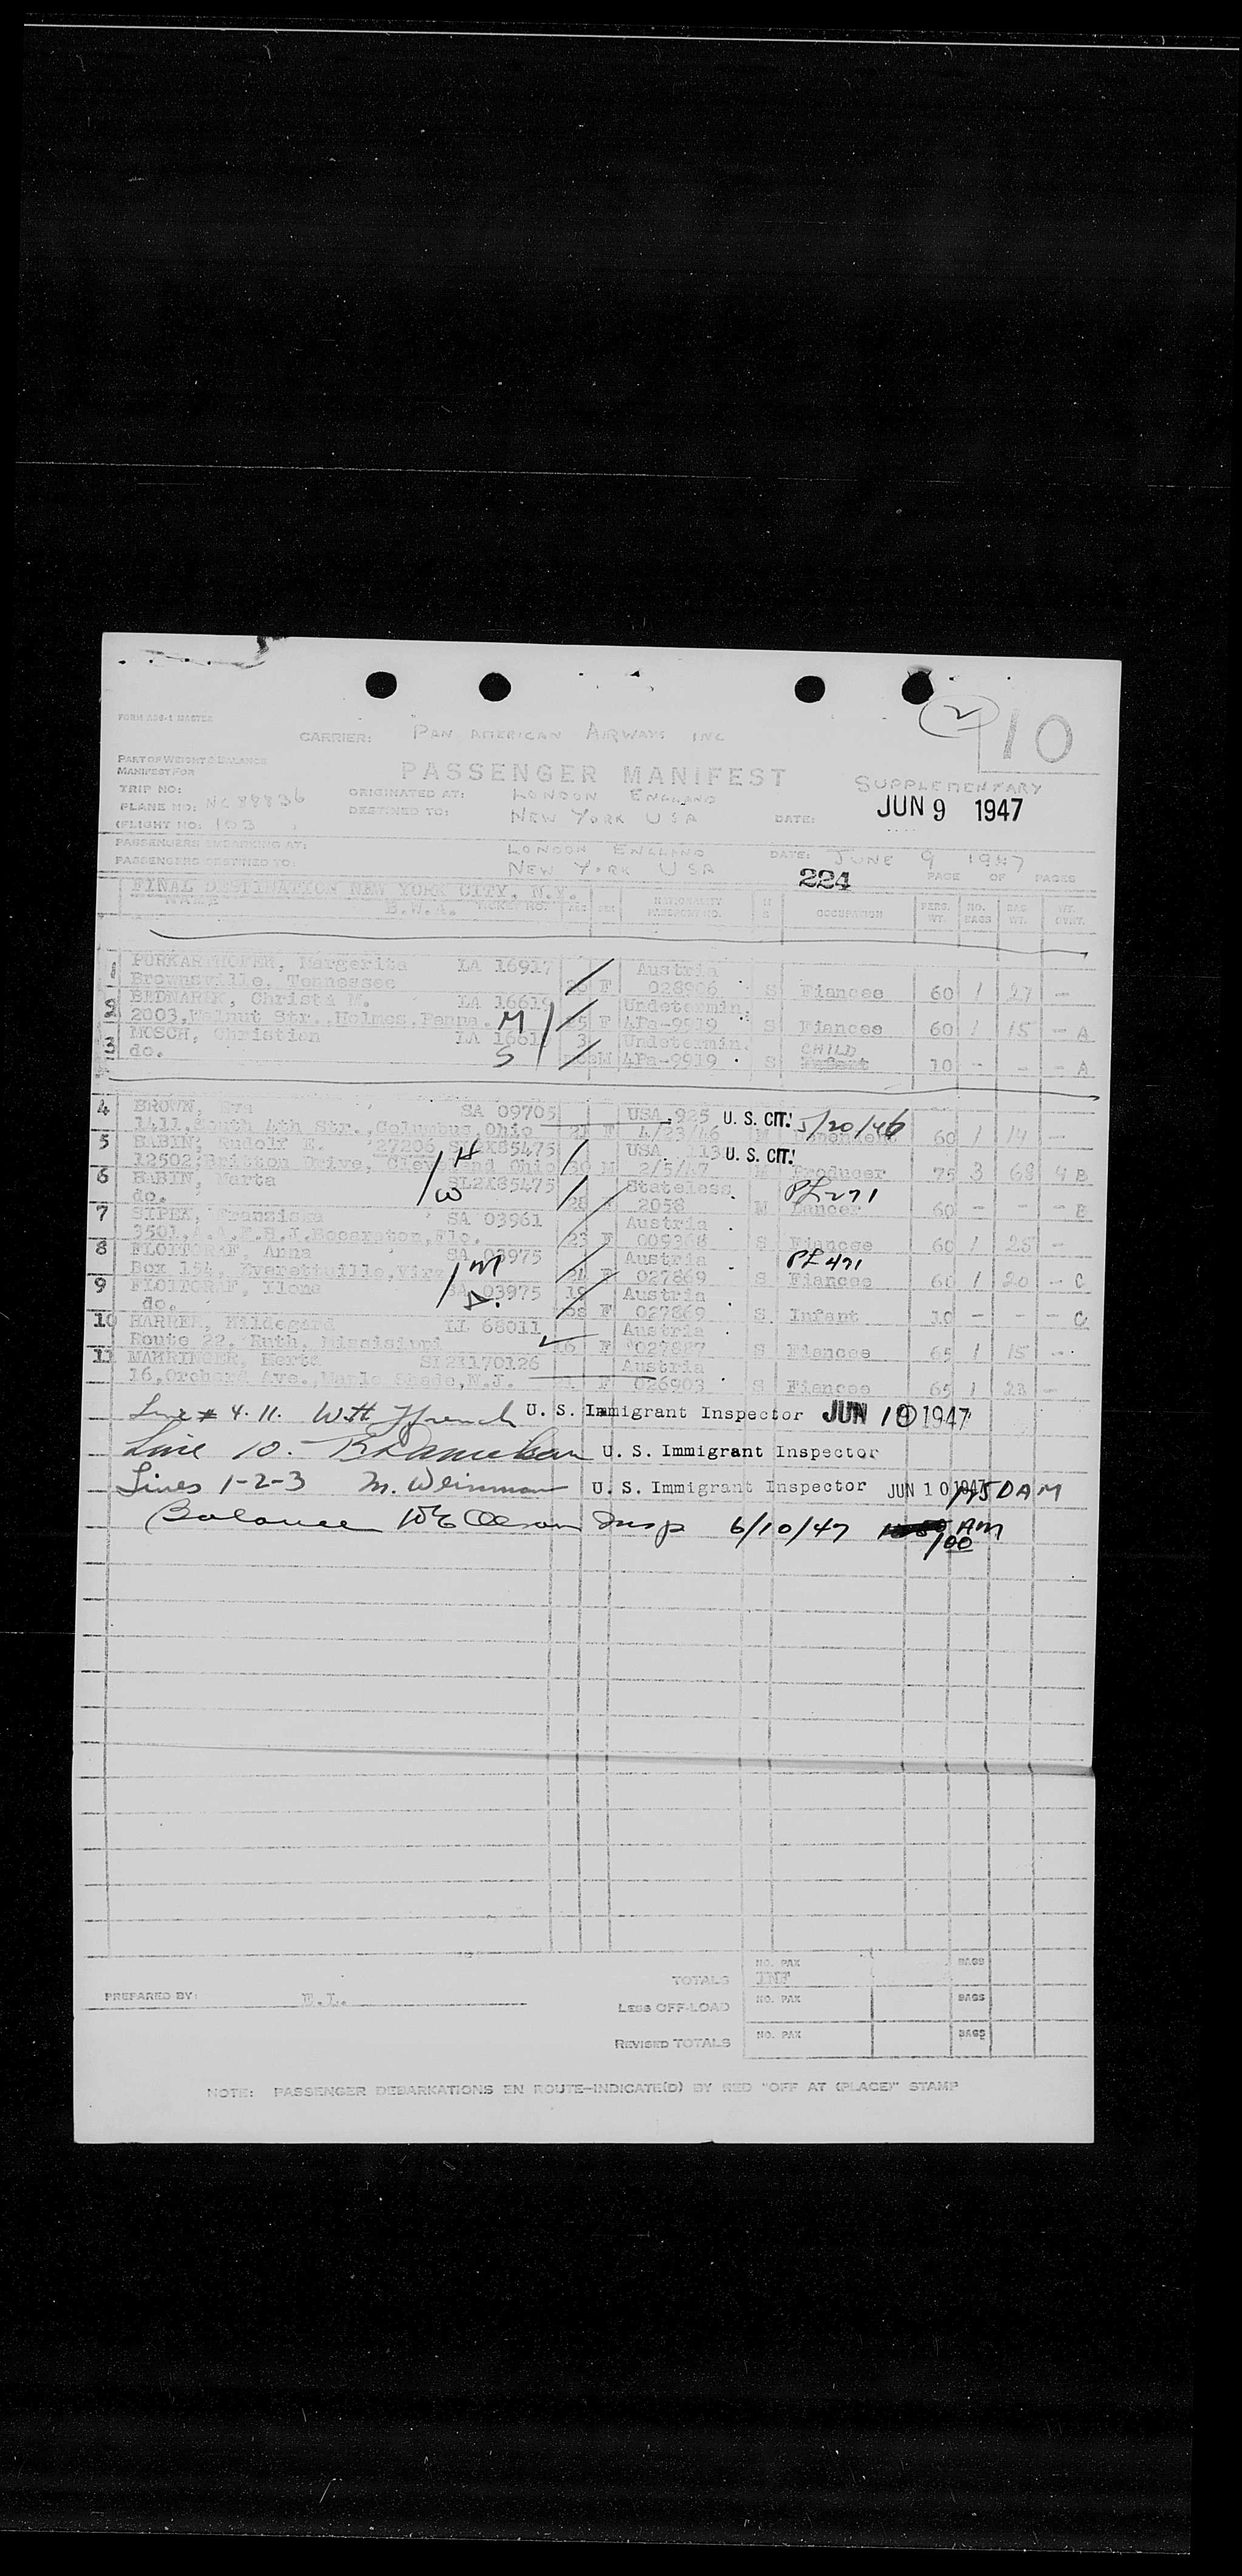 2 10
FORM ADS-1 MASTER
CARRIER: PAN AMERICAN AIRWAYS INC
PART OF WEIGHT & BALANCE
MANIFEST FOR
PASSENGER MANIFEST
SUPPLEMENTARY
TRIP NO:
ORIGINATED AT: LONDON ENGLAND
PLANE NO: NC 88836
DESTINED TO: NEW YORK USA
DATE: JUN 9 1947
(FLIGHT NO: 103
PASSENGERS EMBARKING AT: LONDON ENGLAND DATE: JUNE 9 1947
PASSENGERS DESTINED TO: NEW YORK USA
224 PAGE OF PAGES
FINAL DESTINATION NEW YORK CITY, N.Y.
NAME TICKET NO. AGE SEX NATIONALITY PASSPORT NO. M S OCCUPATION PERS. WT. NO. BAGS BAG. WT. WT. OVWT.
1 Margerita LA 16917 Austria
Brownsville, Tennessee F 028906 S Fiancee 60 1 27 -
2 BEDNAREK, Christa M. LA 16619 Undetermin.
2003, Walnut Str., Holmes, Penna. M 25 F 4Pa-9919 S Fiancee 60 1 15 - A
3 MOSCH, Christian LA 16619 3 Undetermin. CHILD
do. S M 4Pa-9919 S Infant 10 - - - A
4 BROWN, Eva SA 09705 USA 925 U. S. CIT. 5/20/46
1411, South 4th Str., Columbus, Ohio F 4/23/46 M 60 1 14 -
5 BABIN, Rudolf E. 27206 SL2X85475 H USA. 113 U. S. CIT.
12502, Britton Drive, Cleveland Ohio M 2/5/47 M Producer 75 3 68 4 B
6 BABIN, Marta SL2X85475 Stateless PL271
do. W 2058 M Dancer 60 - - - B
7 Franziska SA 03961 Austria
3501, Bocaraton, Flo. 23 F 009368 S Fiancee 60 1 25 -
8 FLOITGRAF, Anna SA 03975 M Austria PL 471
Box 154, F 027869 S Fiancee 60 1 20 - C
9 FLOITGRAF, Ilona SA 03975 Austria
do. D. F 027869 S Infant 10 - - - C
10 HARRER, Hildegard LL 68011 Austria
Route 22, Ruth, Missisippi F 027887 S Fiancee 65 1 15 -
11 MAHRINGER, Herta SL2X170126 Austria
16, Orchard Ave., Maple Shade, N.J. F 026903 S Fiancee 65 1 22 -
Line # 4. 11. W.H. Ffrench U. S. Immigrant Inspector JUN 10 1947
Line 10. U. S. Immigrant Inspector
Lines 1-2-3 M. Weinman U. S. Immigrant Inspector JUN 10 1947 AM
Balance Insp 6/10/47 AM
1 00
TOTALS NO. PAX BAGS
INF
PREPARED BY: LESS OFF-LOAD NO. PAX BAGS
REVISED TOTALS NO. PAX BAGS
NOTE: PASSENGER DEBARKATIONS EN ROUTE-INDICATE(D) BY RED "OFF AT (PLACE)" STAMP